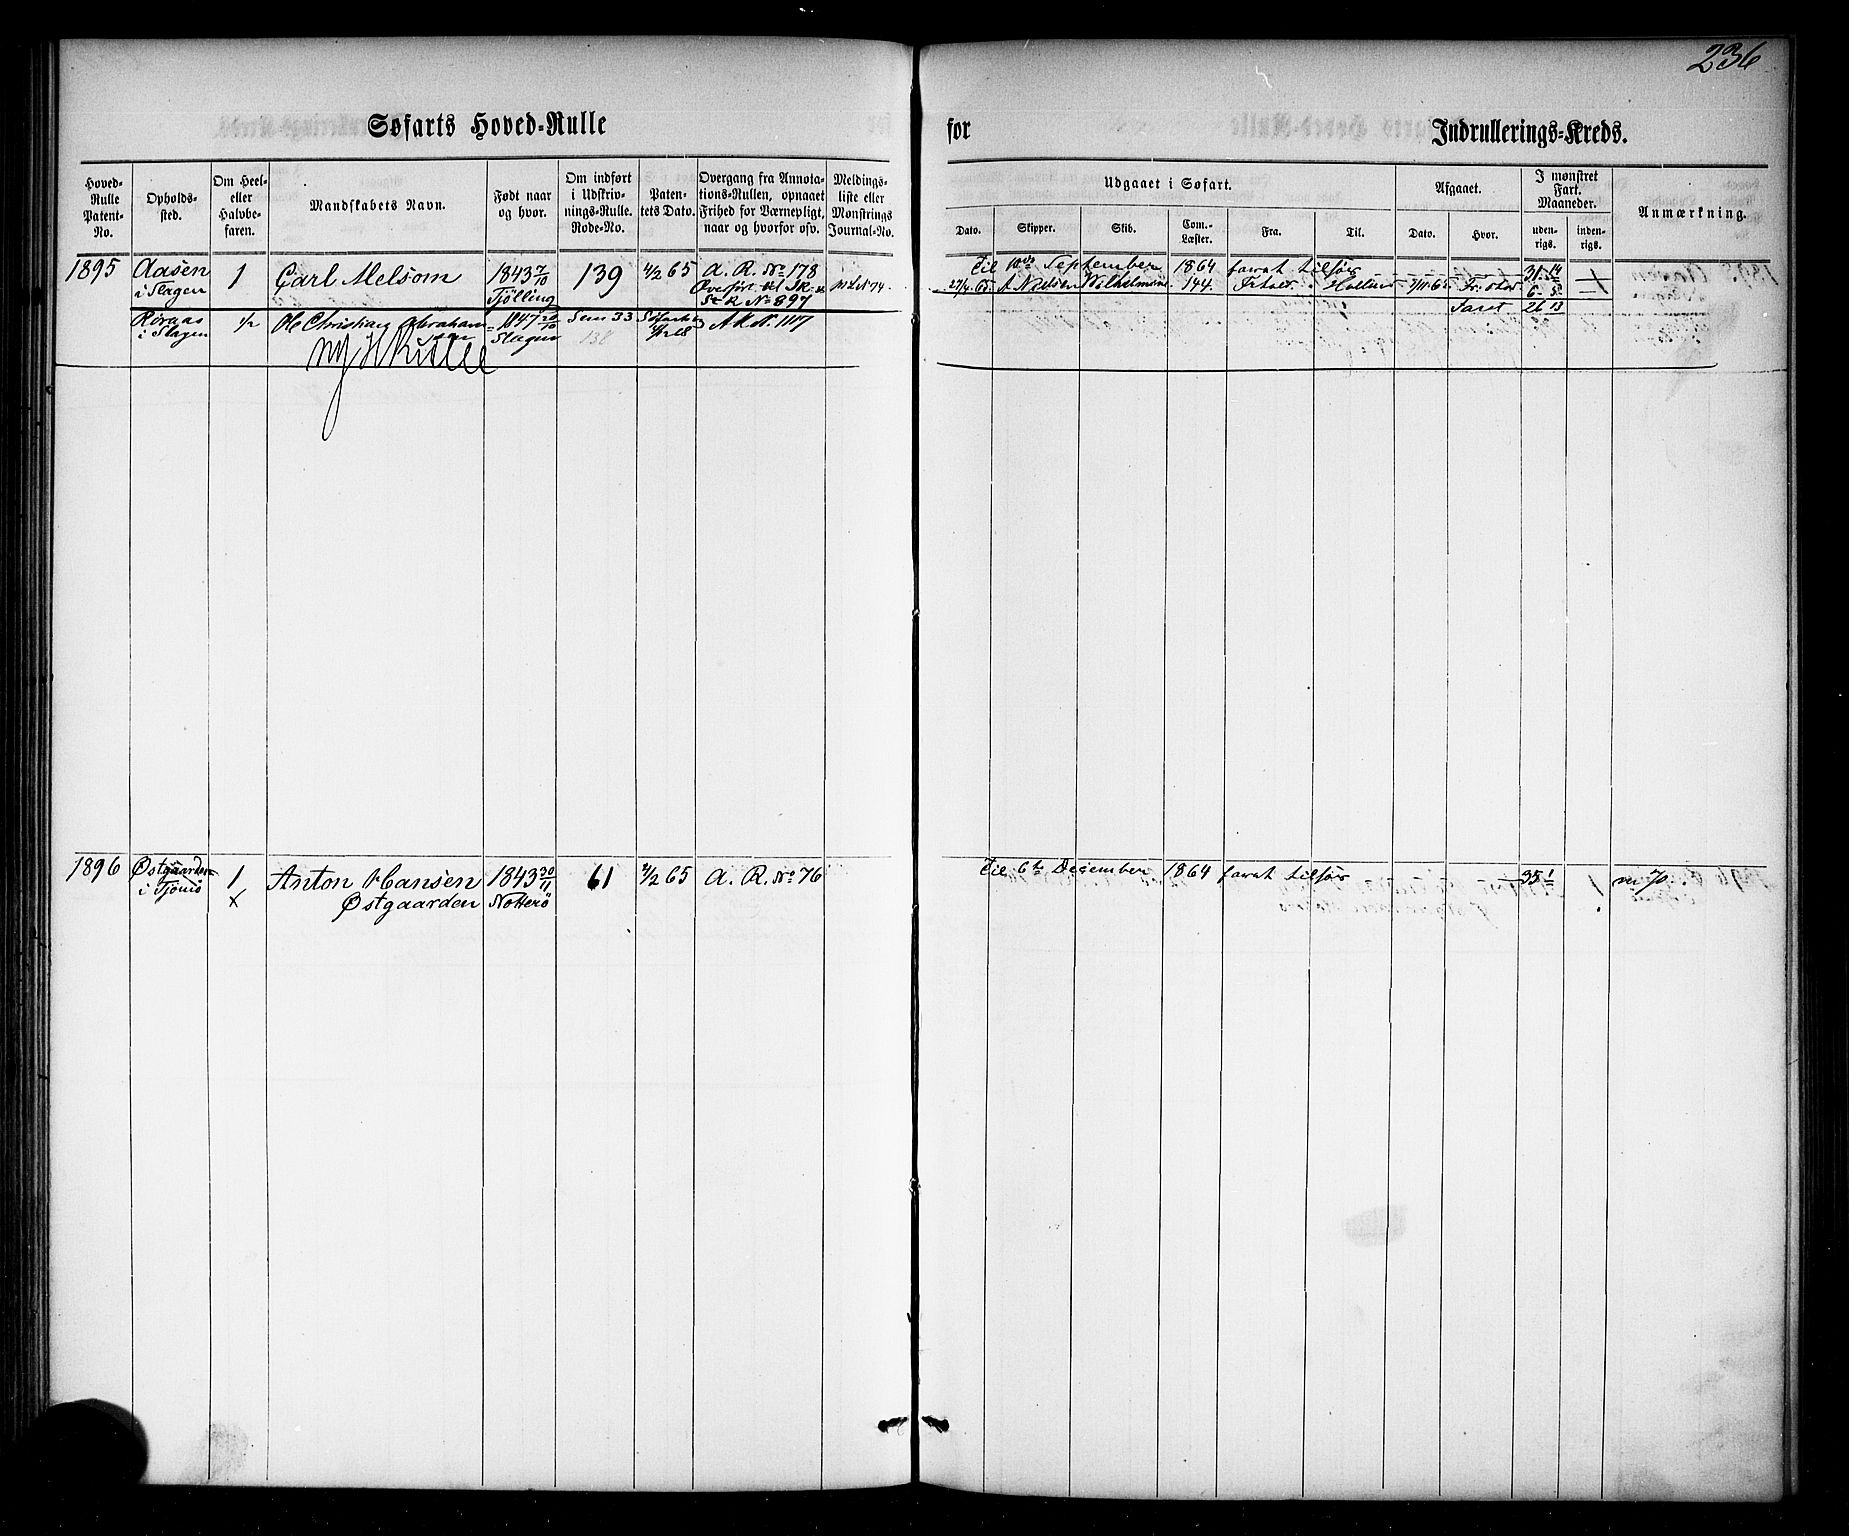 236
Søfarts Hoved-Rulle for Indrullerings-Kreds.
Hoved-Rulle Patent-No.
Opholds-sted.
Om Heel- eller Halvbe-faren.
Mandskabets Navn.
Født naar og hvor.
Om indført i Udskriv-nings-Rulle. Rode-No.
Paten-tets Dato.
Overgang fra Annota-tions-Rullen, opnaaet Frihed for Værnepligt, naar og hvorfor osv.
Meldings-liste eller Mønstrings Journal-No.
Udgaaet i Søfart.
Dato.
Skipper.
Skib.
Com.-Læster.
Fra.
Til.
Afgaaet.
Dato.
Hvor.
I mønstret Fart. Maaneder.
uden-rigs.
inden-rigs.
Anmærkning.
1895 Aasen i Slagen 1 Carl Melsom 1843 7/10 Tjölling 139 4/2 65 A. R. No 178
Overført til
S R No 897
Til September 1864 farat tilsøs 31 14
27/4 65 A Nielsen Wilhelmine 144 6 5
Faret 26 13
i Slagen 1/2 Ole Christian Abraham-sen 1847 20/10 Slagen Sem 33 138 A R N. 1117
ny H Rulle
1896 Østgaarden i Tjømø 1 Anton Hansen 1843 30/11 61 4/2 65 A. R. No 76
x Østgaarden Nøtterö
Til 6te December 1864 farat tilsøs 35 1 70.